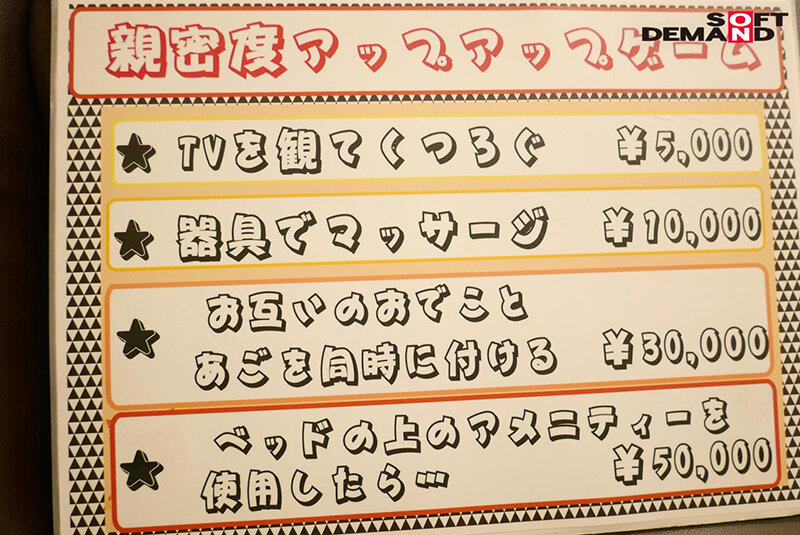 SOFT
DEMAND
親密度アップアップゲーム
★ TVを観てくつろぐ ¥5,000
★ 器具でマッサージ ¥10,000
★ お互いのおでこと
あごを同時に付ける ¥30,000
★ ベッドの上のアメニティーを
使用したら… ¥50,000